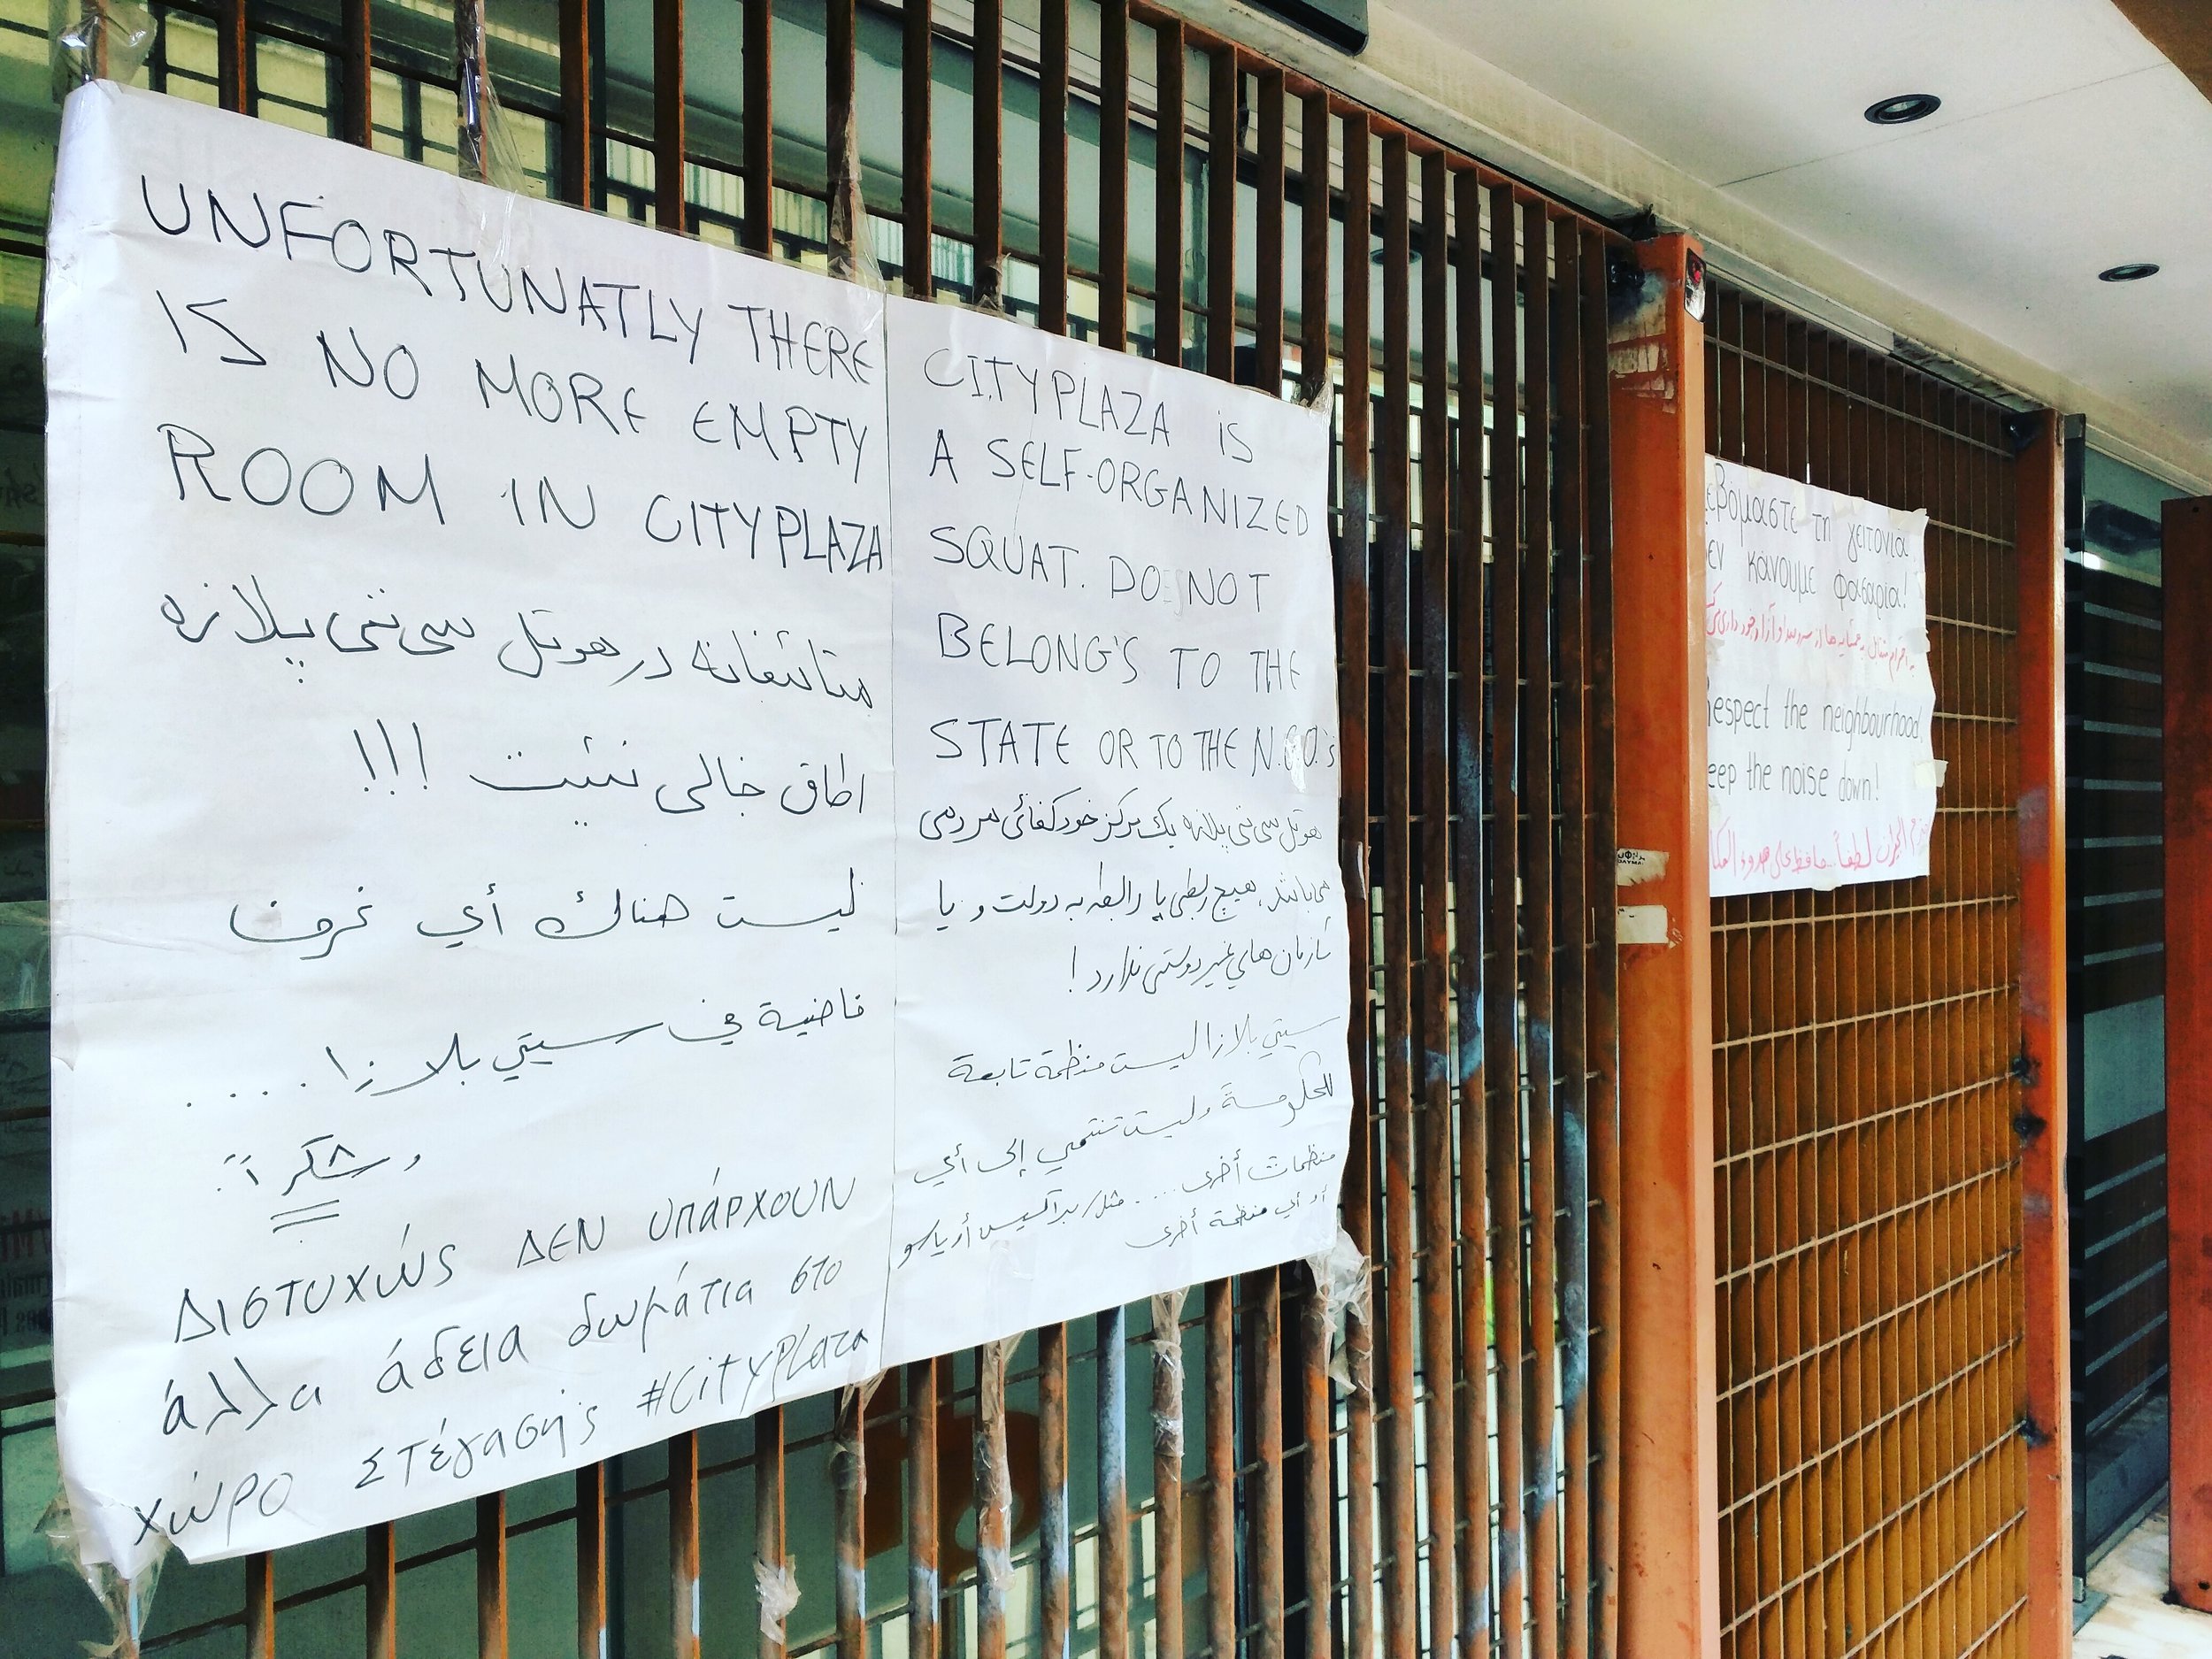 UNFORTUNATLY THERE
IS NO MORE EMPTY
ROOM IN CITYPLAZA
متائسفانه در هوتل سی تی پلازه
اطاق خالی نیست !!!
ليست هناك أي غرف
فاضية في سيتي بلازا ....
و شكراً
ΔΙΣΤΥΧΏΣ ΔΕΝ ΥΠΆΡΧΟΥΝ
άλλα άδεια δωμάτια στο
χώρο ΣΤέγασης #CityPlaza
CITYPLAZA is
A SELF-ORGANIZED
SQUAT. DOES NOT
BELONG'S TO THE
STATE OR TO THE N.G.O.'s
هوتل سی تی پلازه یک مرکز خودکفائی مردمی
می باشد. هیچ ربطی یا رابطه به دولت و یا
سازمان های غیر دولتی ندارد!
سيتي بلازا ليست منظمة تابعة
للحكومة وليست تنتمي إلى أي
منظمات أخرى ..... مثل براكسيس أو
أو أي منظمة أخرى
εβόμαστε τη γειτονιά
εν κάνουμε φασαρία!
Respect the neighbourhood,
eep the noise down!
لطفاً .. حافظ على هدوء